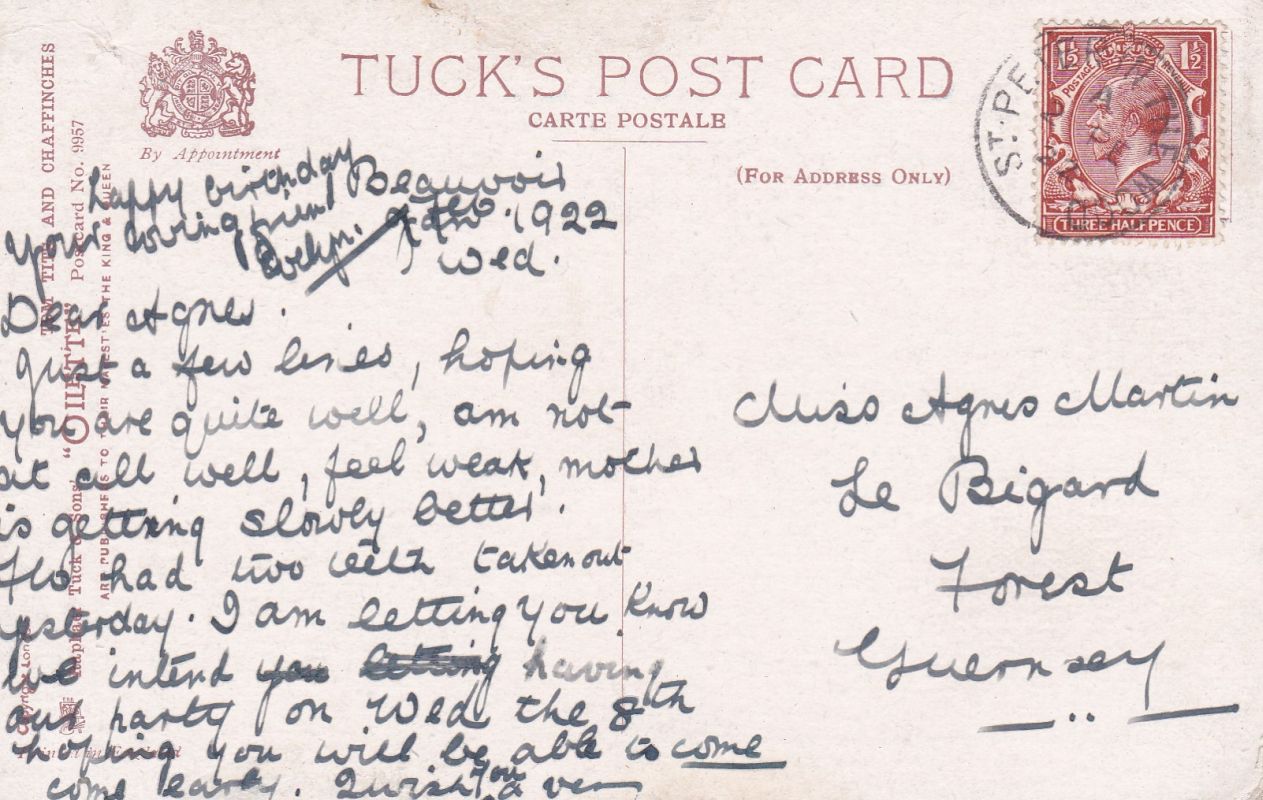 TUCK'S POST CARD
CARTE POSTALE
By Appointment
(FOR ADDRESS ONLY)
1½ 1½
POSTAGE REVENUE
THREE HALFPENCE
ST. PETER PORT
GUERNSEY
TOM TITS AND CHAFFINCHES
Raphael Tuck & Sons' "OILETTE" Postcard No. 9957
ARE PUBLISHERS TO THEIR MAJESTIES THE KING & QUEEN
Copyright London
Printed in England
happy birthday
Your loving friend
Evelyn.
Beauvoir
1922
Wed.
Dear Agnes.
Just a few lines, hoping
you are quite well, am not
at all well, feel weak, mother
is getting slowly better.
Flo had two teeth taken out
yesterday. I am letting you know
we intend you letting having
our party on Wed, the 8th
hoping you will be able to come
come early. I wish you a very
Miss Agnes Martin
Le Bigard
Forest
Guernsey